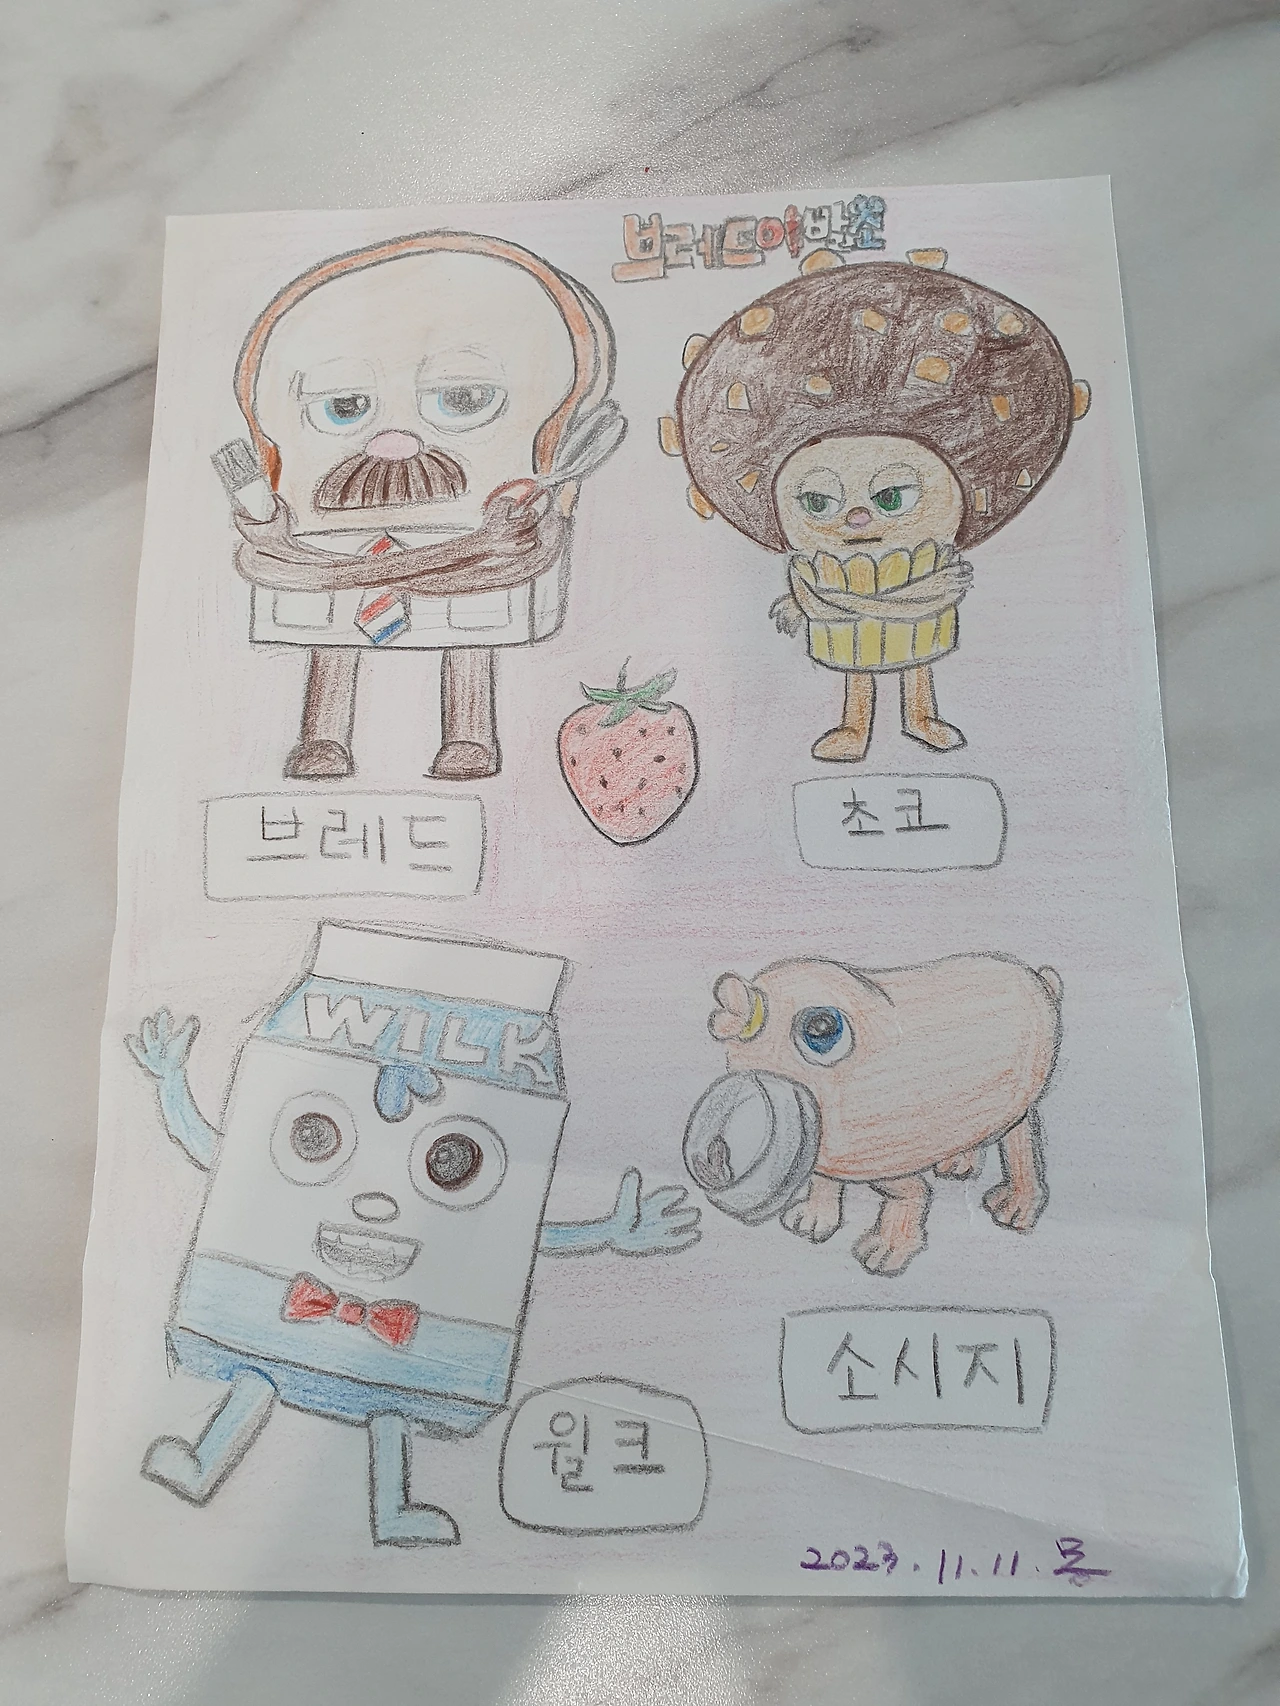 브레드이발소
브레드
초코
WILK
윌크
소시지
2023.11.11.